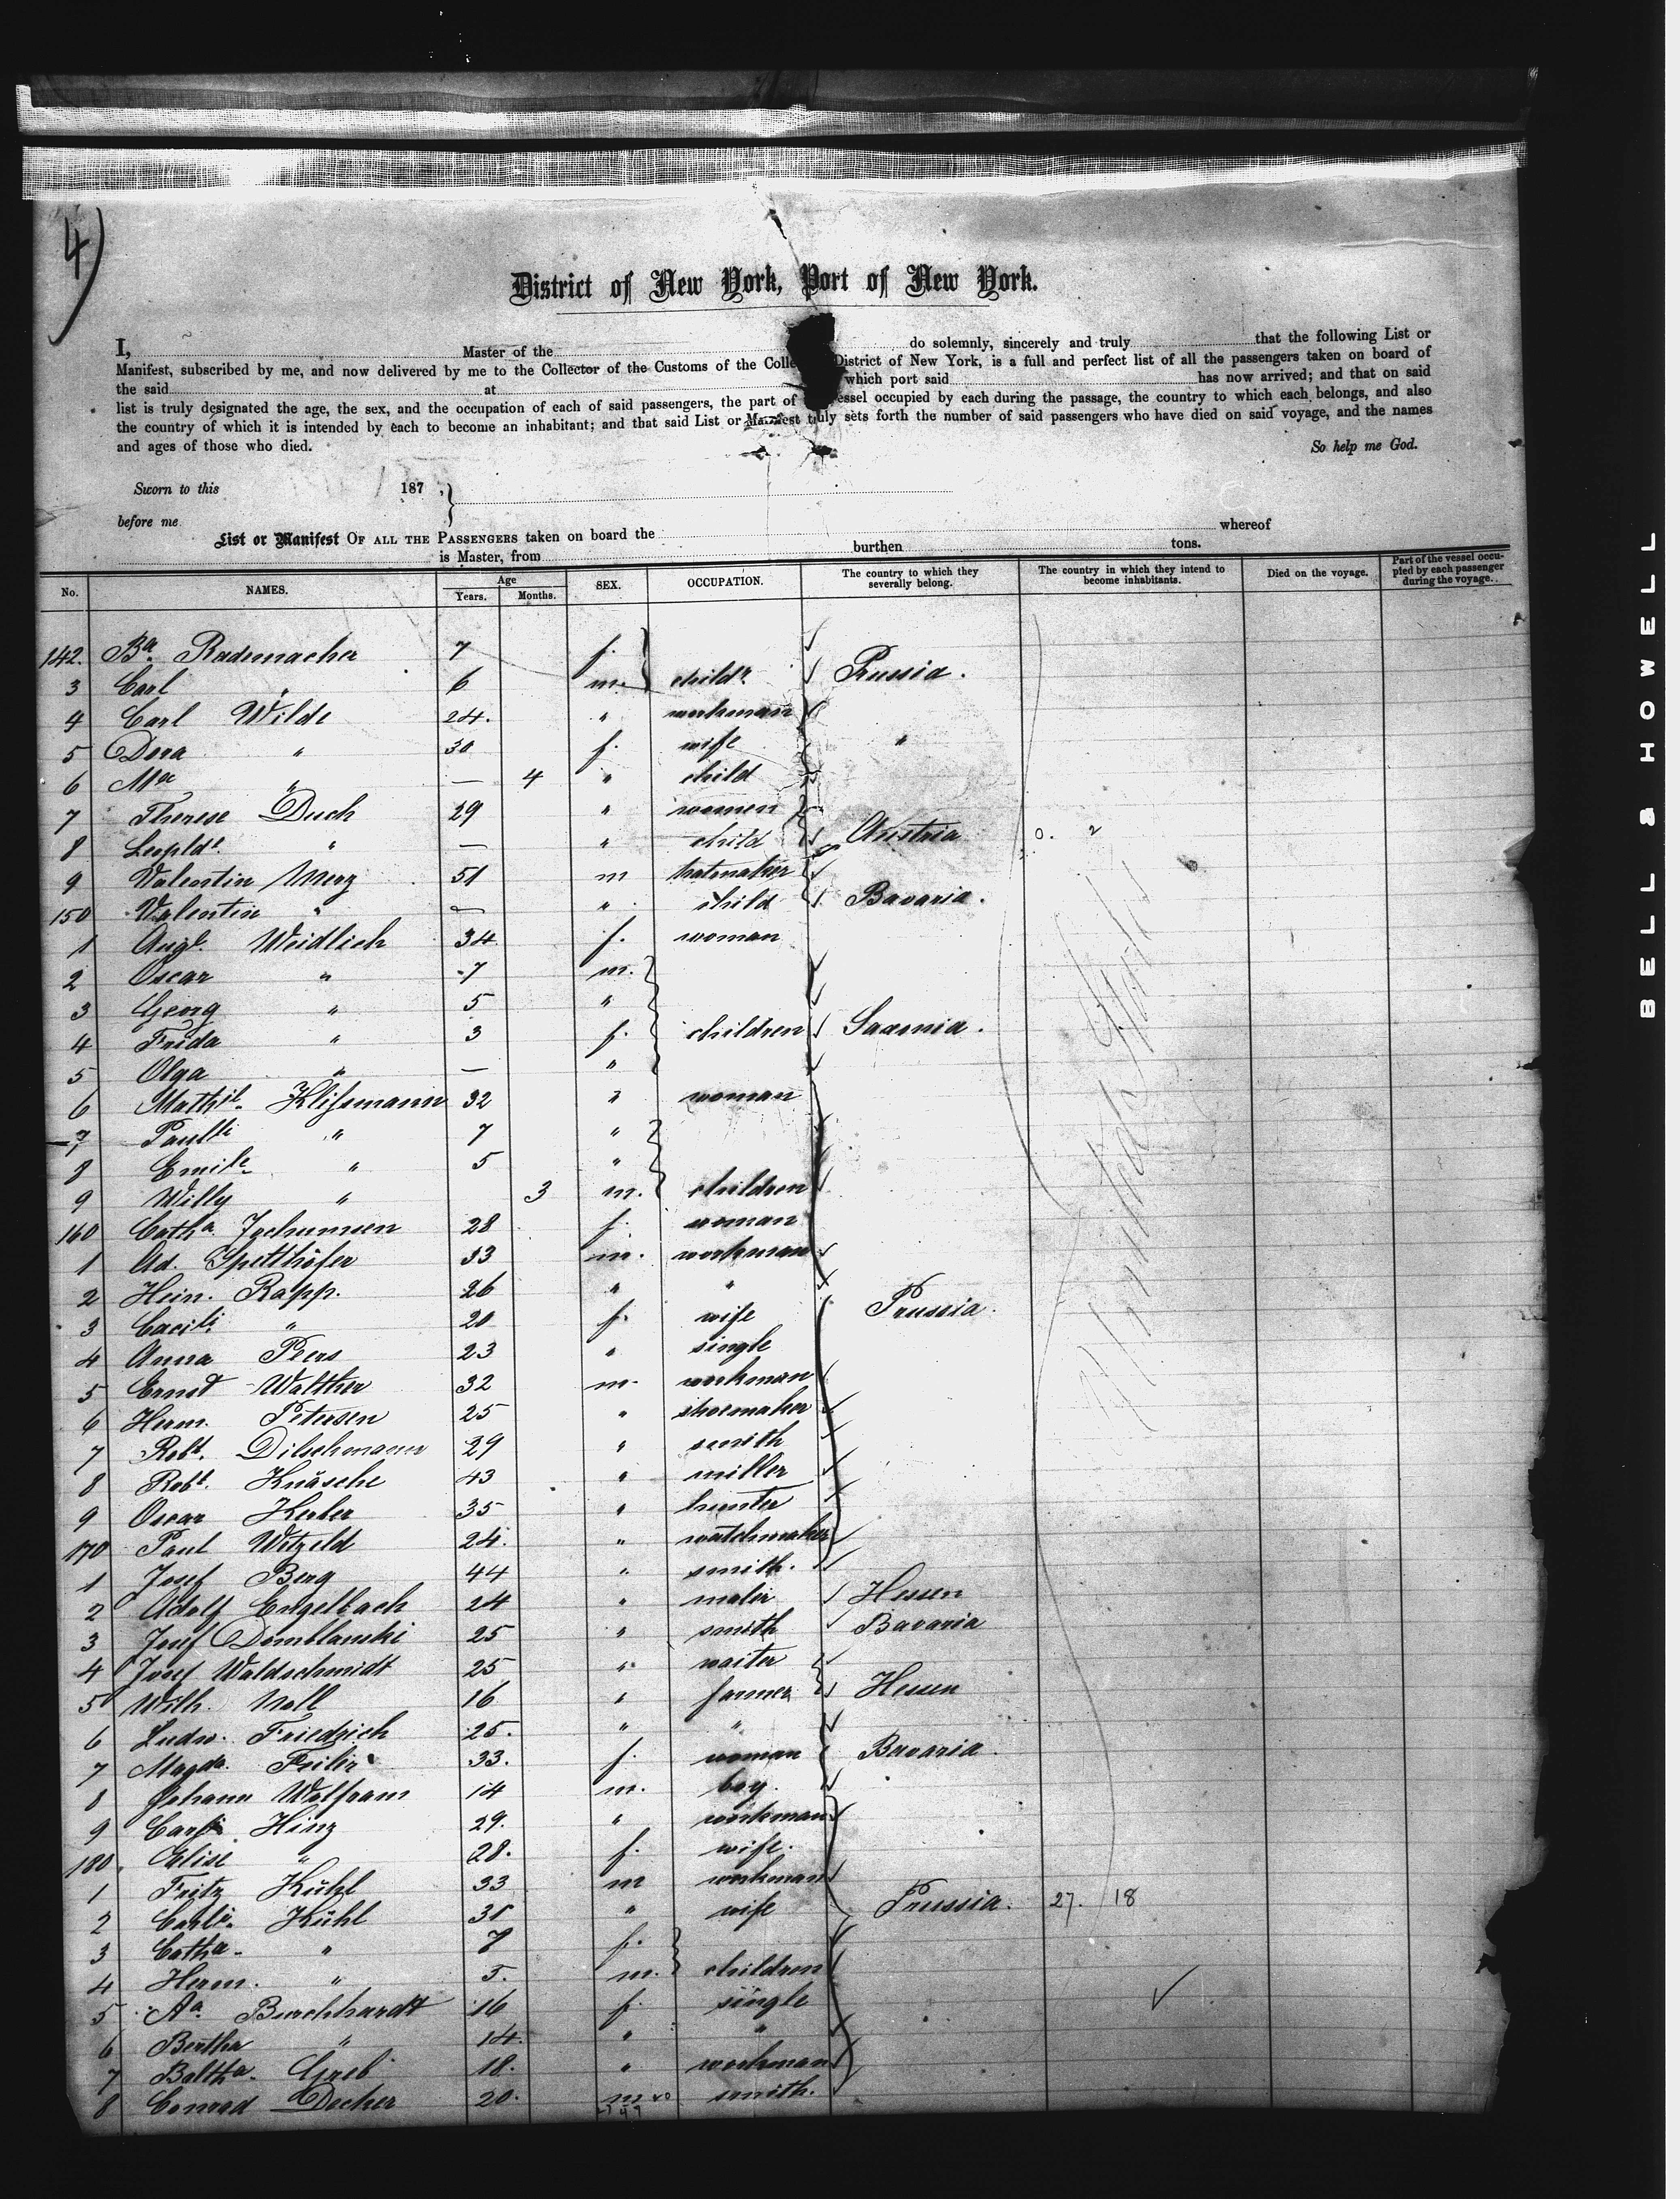 4)
District of New York, Port of New York.
I, Master of the do solemnly, sincerely and truly that the following List or
Manifest, subscribed by me, and now delivered by me to the Collector of the Customs of the Colle District of New York, is a full and perfect list of all the passengers taken on board of
the said at which port said has now arrived; and that on said
list is truly designated the age, the sex, and the occupation of each of said passengers, the part of essel occupied by each during the passage, the country to which each belongs, and also
the country of which it is intended by each to become an inhabitant; and that said List or Manifest truly sets forth the number of said passengers who have died on said voyage, and the names
and ages of those who died. So help me God.
Sworn to this 187 ,
before me
List or Manifest OF ALL THE PASSENGERS taken on board the whereof
is Master, from burthen tons.
No. NAMES. Age Years. Months. SEX. OCCUPATION. The country to which they severally belong. The country in which they intend to become inhabitants. Died on the voyage. Part of the vessel occupied by each passenger during the voyage.
142. Ba. Rademacher 7 f.
3 Carl " 6 m. childr. Prussia.
4 Carl Wilde 24. " workman
5 Dora " 30 f. wife "
6 " — 4 " child
7 Therese Duch 29 " women
8 Leoplde. " — " child Austria 0. 2
9 Valentin Merz 51 m hatmaker
150 Valentin " — " child Bavaria.
1 Augt. Weidlich 34 f. woman
2 Oscar " 7 m.
3 Georg " 5 "
4 Frida " 3 f. children Saxonia.
5 Olga " — "
6 Mathil. Klifsmann 32 " woman
7 " 7 "
8 Emile " 5 "
9 Willy " 3 m. children
160 Catha. Jochumsen 28 f. woman
1 Ad. Spetthöfer 33 m. workman
2 Hein. Rapp. 26 " "
3 " 20 f. wife Prussia.
4 Anna Peers 23 " single
5 Ernst Walther 32 m. workman
6 Herm. Petersen 25 " shoemaker
7 Robt. Dilschmann 29 " smith
8 Robt. Knäsche 43 " miller
9 Oscar 35 " hunter
170 Paul Witzeld 24. " watchmaker
1 Josef Berg 44 " smith.
2 Adolf Engelbach 24 " Hessen
3 Josef Domblanski 25 " smith Bavaria
4 Josef Waldschmidt 25 " waiter
5 Wilh. Noll 16 " farmer Hessen
6 Ludw. Friedrich 25. " "
7 Magda. 33. f. woman Bavaria.
8 Johann Wolfram 14 m. boy.
9 Hinz 29. " workman
180. Elise " 28. f. wife.
1 Fritz Kühl 33 m workman
2 Kühl 31 " wife Prussia. 27. 18
3 Catha. " 7 f.
4 Herm. " 5. m. children
5 Aa. Burchhardt 16 f. single
6 Bertha " 14. " "
7 Baltha. Greb 18. " workman
8 Conrad Decker 20. m smith.
BELL & HOWELL